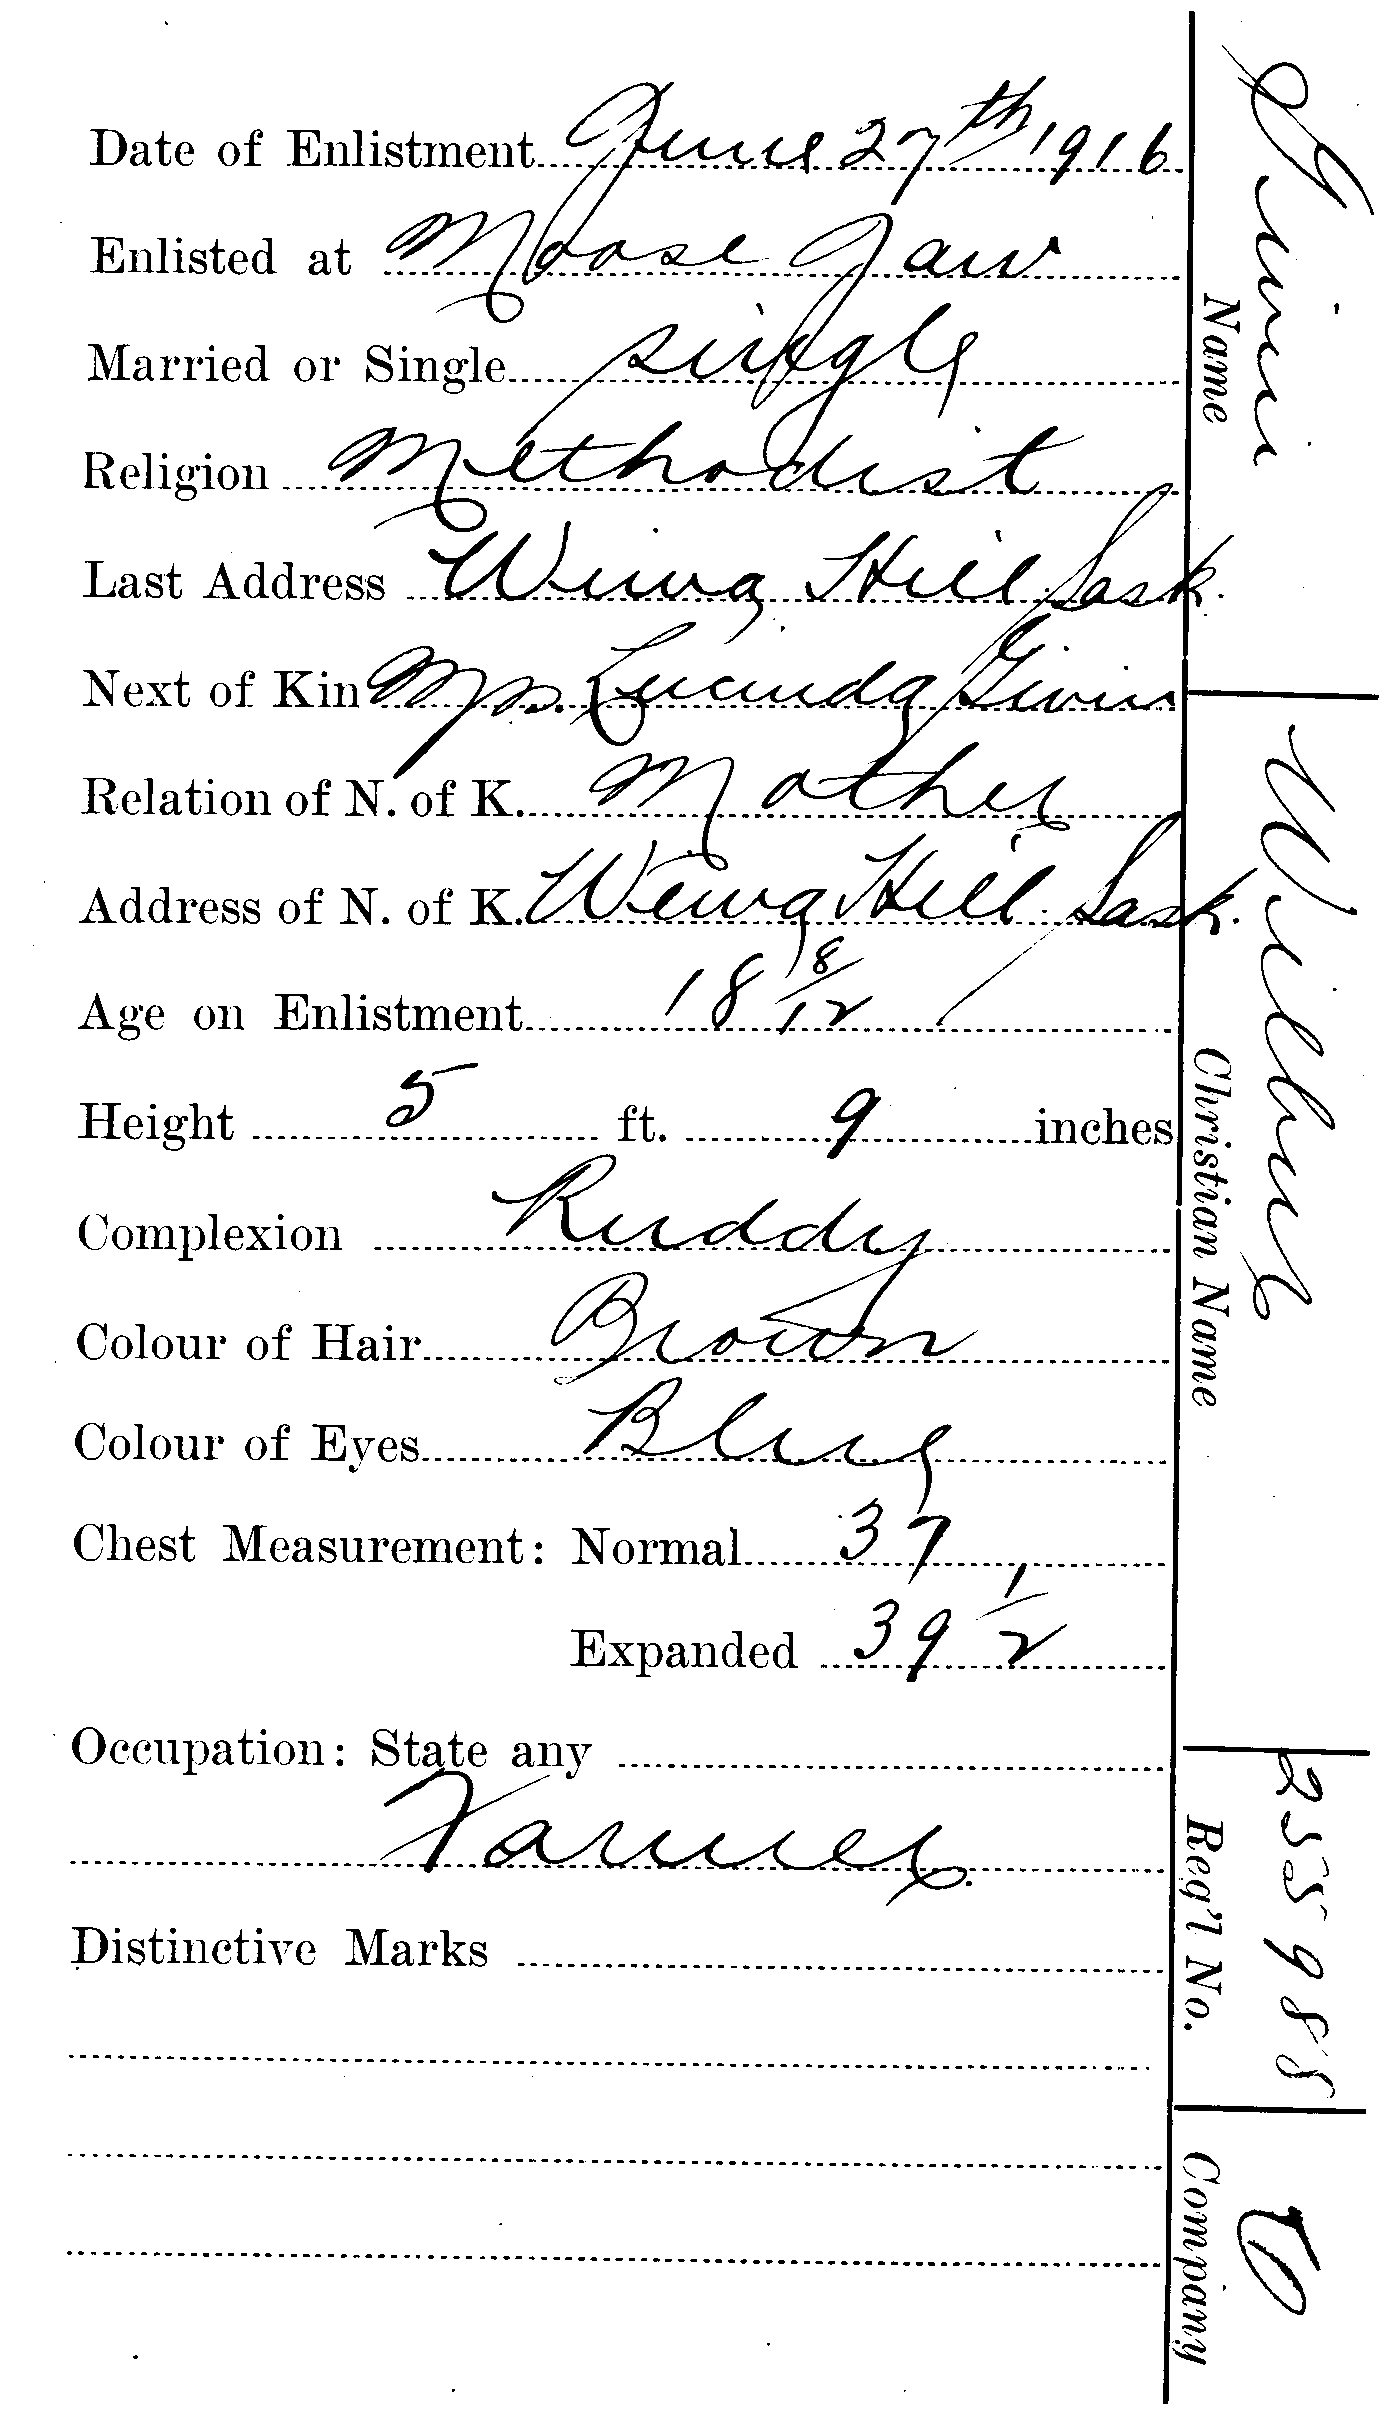 Date of Enlistment June 27th 1916
Enlisted at Moose Jaw
Married or Single single
Religion Methodist
Last Address Wiwa Hill Sask.
Next of Kin Mrs. Lucinda Givin
Relation of N. of K. Mother
Address of N. of K. Wiwa Hill Sask.
Age on Enlistment 18 8/12
Height 5 ft. 9 inches
Complexion Ruddy
Colour of Hair Brown
Colour of Eyes Blue
Chest Measurement: Normal 37
Expanded 39 1/2
Occupation: State any
Farmer
Distinctive Marks
Givin
Name
Wilbur
Christian Name
255988
Reg'l No.
Company